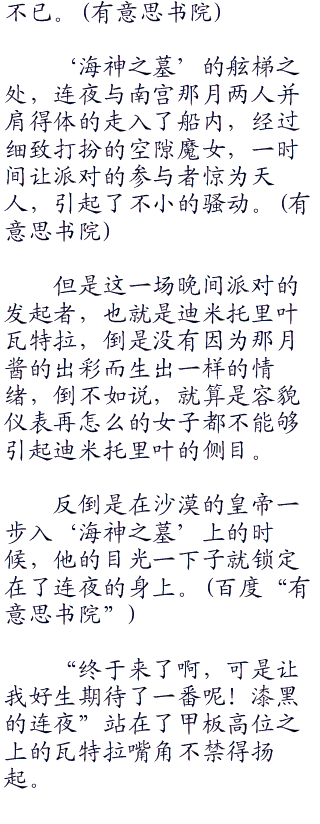 不已。(有意思书院)
‘海神之墓’的舷梯之
处，连夜与南宫那月两人并
肩得体的走入了船内，经过
细致打扮的空隙魔女，一时
间让派对的参与者惊为天
人，引起了不小的骚动。(有
意思书院)
但是这一场晚间派对的
发起者，也就是迪米托里叶
瓦特拉，倒是没有因为那月
酱的出彩而生出一样的情
绪，倒不如说，就算是容貌
仪表再怎么的女子都不能够
引起迪米托里叶的侧目。
反倒是在沙漠的皇帝一
步入‘海神之墓’上的时
候，他的目光一下子就锁定
在了连夜的身上。(百度“有
意思书院”)
“终于来了啊，可是让
我好生期待了一番呢！漆黑
的连夜”站在了甲板高位之
上的瓦特拉嘴角不禁得扬
起。